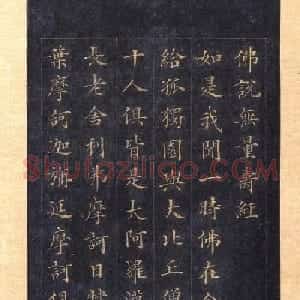 佛說無量壽經
如是我聞一時佛在
給孤獨園與大比丘僧
十人俱皆是大阿羅漢
長老舍利弗摩訶目犍
葉摩訶迦旃延摩訶俱
Shufaziliao.com